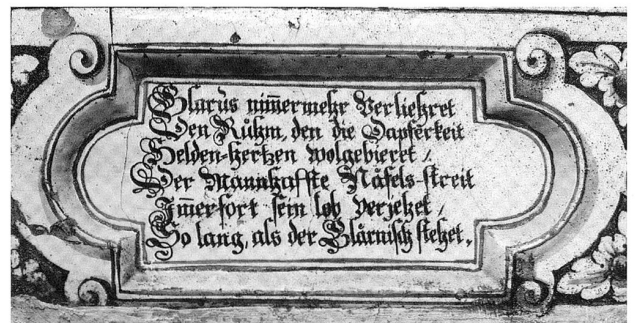 Glarus nim̅ermehr Verliehret
Den Růhm, den die Dapferkeit
Helden-hertzen wolgebieret /
Der Mannhaffte Nåfels-streit
Im̅erfort sein lob verjehet /
So lang, als der Glårnisch stehet.